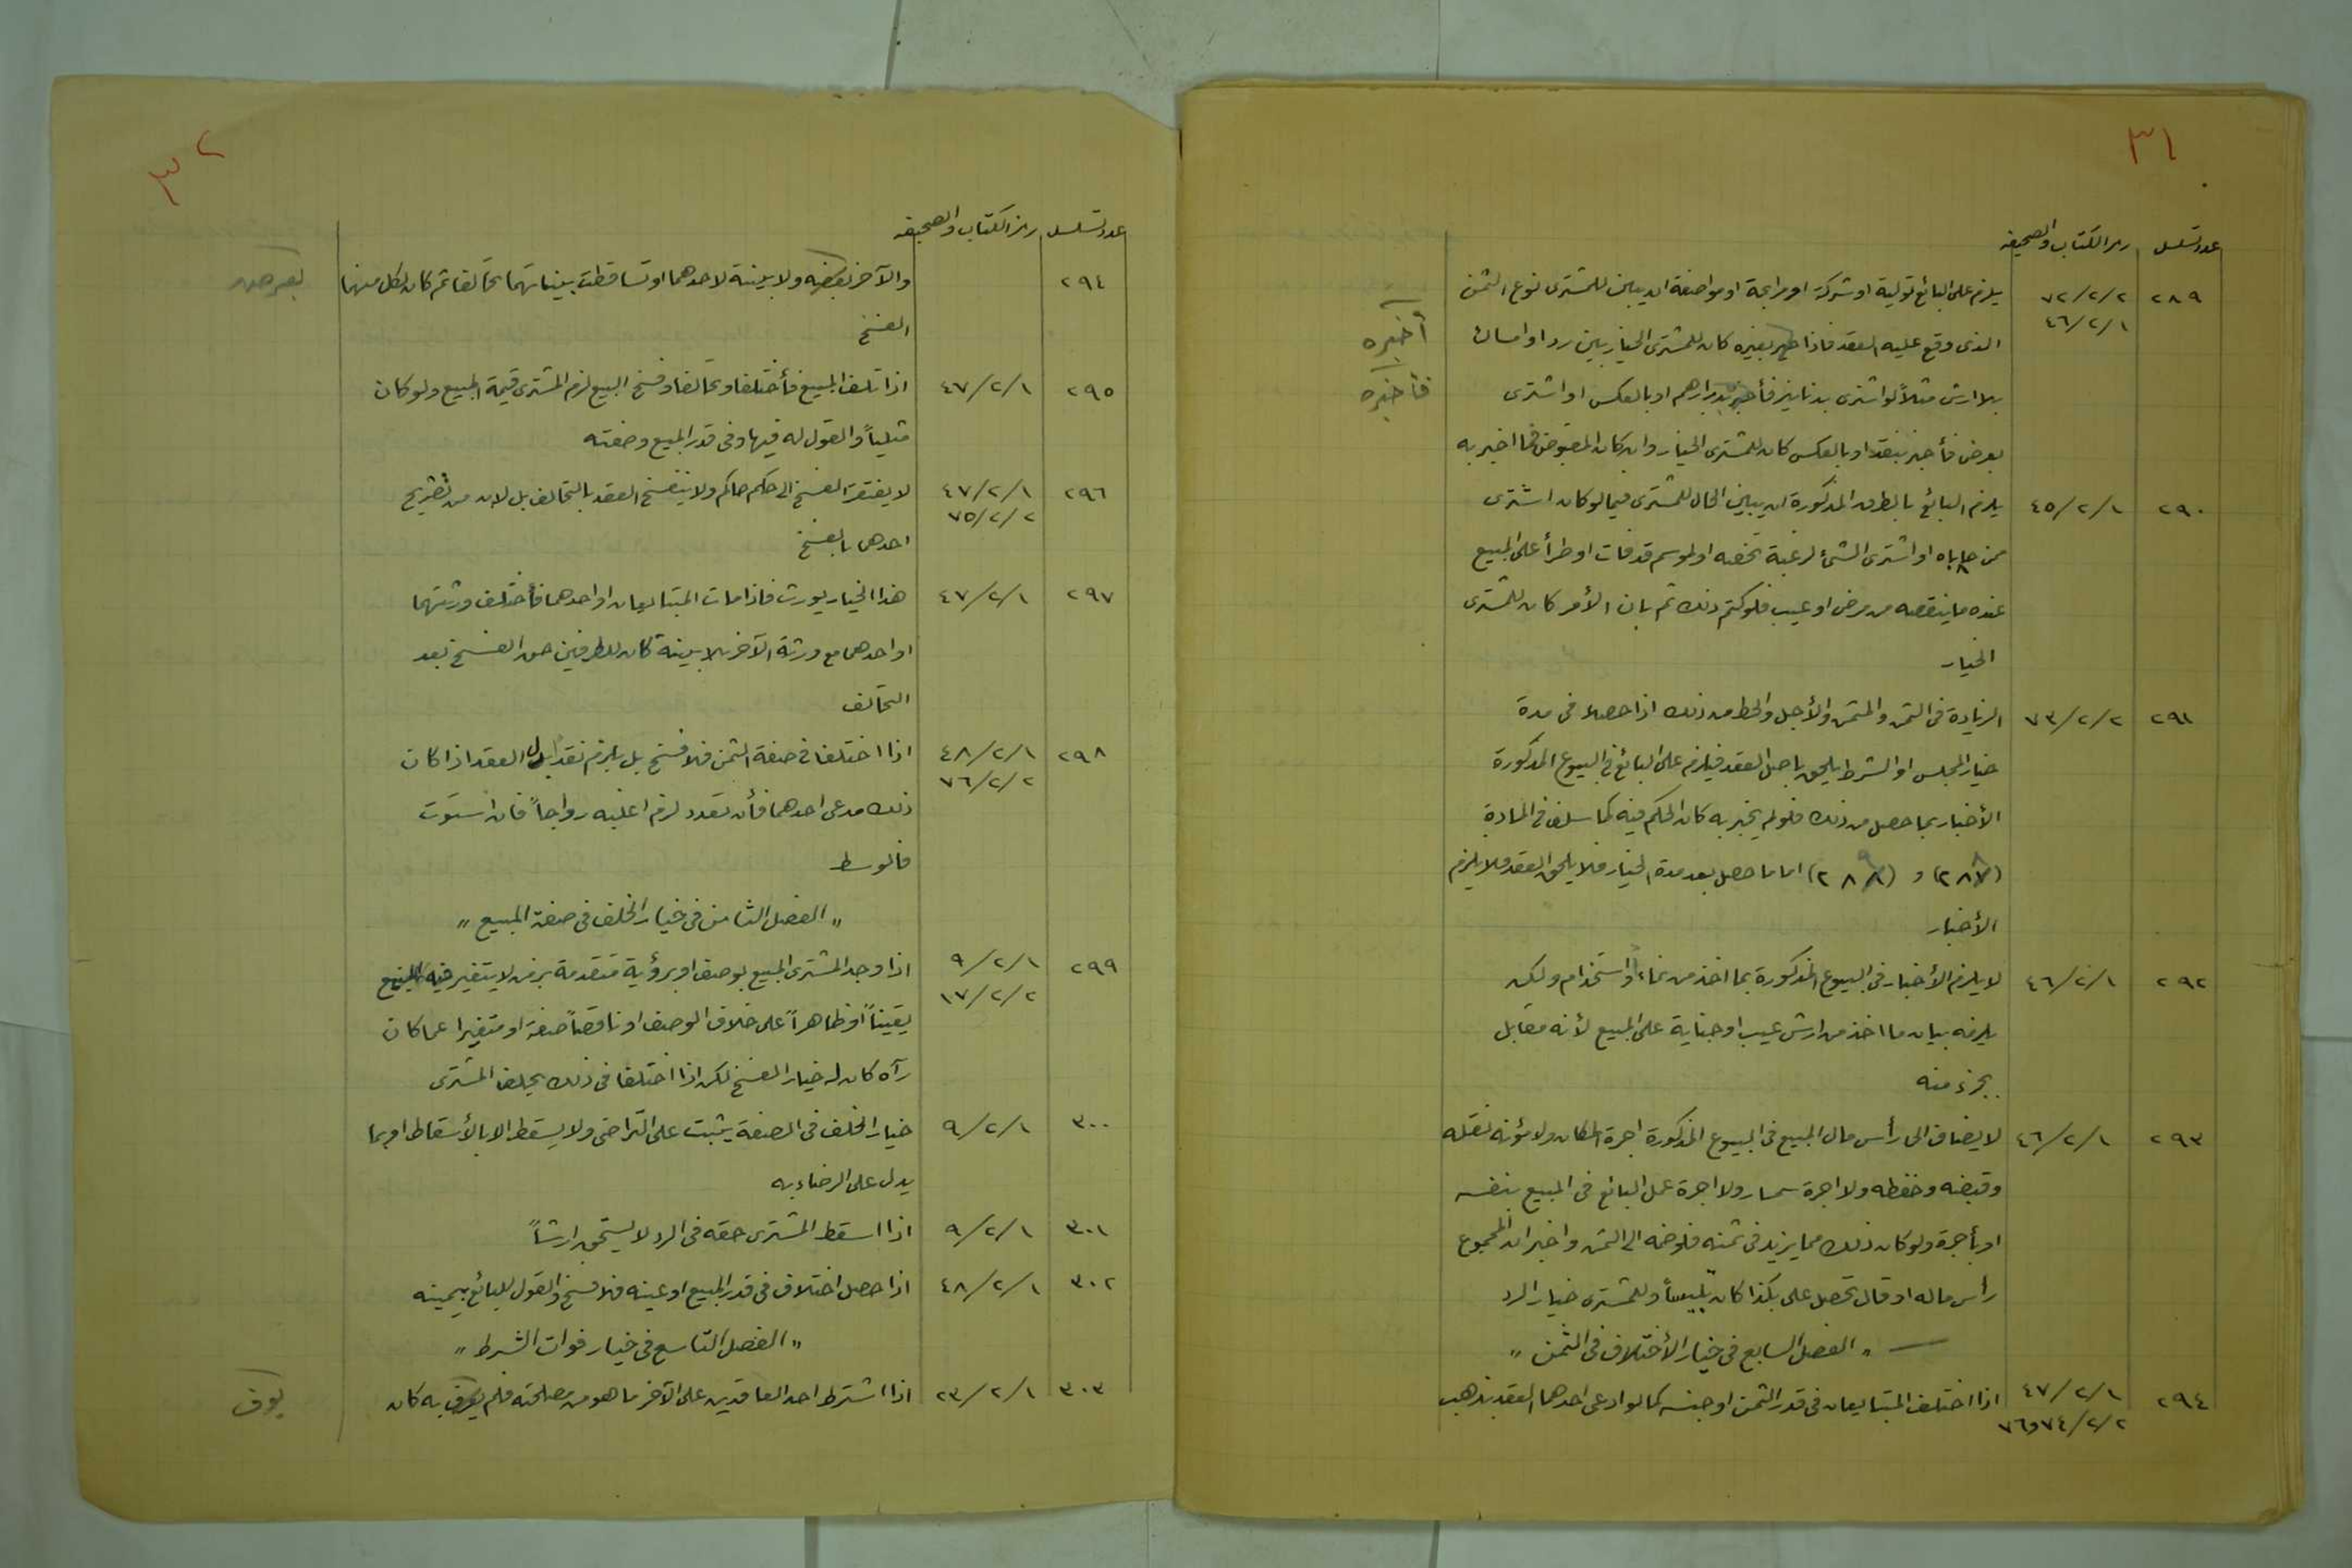 ٣١
عدد تسلسل رمز الكتاب والصحيفه
٢٨٩ ٧٢/٢/٢ يلزم على البائع تولية او شركة او مرابحة او مواضعة ان يبين للمشترى نوع الثمن
٤٦/٢/١ الذى وقع عليه العقد فاذا ظهر بغيره كان للمشترى الخيار بين رد او امساك أخبره
بلا ارش مثلاً لو اشترى بدنانير فأخبره بدراهم او بالعكس او اشترى فأخبره
بعرض فأخبر بنقد او بالعكس كان للمشترى الخيار وان كان المقبوض مما اخبر به
٢٩٠ ٤٥/٢/١ يلزم البائع بالطرق المذكورة ان يبين الحال للمشترى فيما لو كان اشترى
ممن حاباه او اشترى الشئ لرغبة تخصه او لموسم قد فات او طرأ على المبيع
عنده ما ينقصه من مرض او عيب فلو كتم ذلك ثم بان الأمر كان للمشترى
الخيار
٢٩١ ٧٣/٢/٢ الزيادة فى الثمن والمثمن والأجل والحط من ذلك اذا حصلا فى مدة
خيار المجلس او الشرط يلحق باصل العقد فيلزم على البائع فى البيوع المذكورة
الأخبار بما حصل من ذلك فلو لم يخبر به كان الحكم فيه كما سلف فى المادة
(٢٨٨) و (٢٨٩) اما ما حصل بعد مدة الخيار فلا يلحق العقد فلا يلزم
الأخبار
٢٩٢ ٤٦/٢/١ لا يلزم الأخبار فى البيوع المذكورة بما اخذ من نماء او استخدام ولكن
يلزمه بيان ما اخذ من ارش عيب او جناية على المبيع لأنه مقابل
بجزء منه
٢٩٣ ٤٦/٢/١ لا يضاف الى رأس مال المبيع فى البيوع المذكورة اجرة المكان ولا مؤنة نقله
وقبضه وحفظه ولا اجرة سمسار ولا اجرة عمل البائع فى المبيع بنفسه
او بأجرة ولو كان ذلك مما يزيد فى ثمنه فلو ضمه الى الثمن واخبر ان المجموع
رأس ماله او قال تحصل على بكذا كان تلبيساً وللمشترى خيار الرد
— „ الفصل السابع فى خيار الأختلاف فى الثمن „
٢٩٤ ٤٧/٢/١ اذا اختلف المتبايعان فى قدر الثمن او جنسه كما لو ادعى احدهما العقد بذهب
٧٤/٢/٢و٧٦
٣٢
عدد تسلسل رمز الكتاب والصحيفه
٢٩٤ والآخر بفضة ولا بينة لاحدهما او تساقطت بيناتهما تحالفا ثم كان لكل منهما
الفسخ
٢٩٥ ٤٧/٢/١ اذا تلف المبيع فأختلفا وتحالفا وفسخ البيع لزم المشترى قيمة المبيع ولو كان
مثلياً والقول له فيها وفى قدر المبيع وصفته
٢٩٦ ٤٧/٢/١ لا يفتقر الفسخ الى حكم حاكم ولا ينفسخ العقد بالتحالف بل لابد من تصريح
٧٥/٢/٢ احدهما بالفسخ
٢٩٧ ٤٧/٢/١ هذا الخيار يورث فاذا مات المتبايعان او احدهما فأختلف ورثتهما
او احدهما مع ورثة الآخر بلا بينة كان للطرفين حق الفسخ بعد
التحالف
٢٩٨ ٤٨/٢/١ اذا اختلفا فى صفة الثمن فلا فسخ بل يلزم نقد بلد العقد اذا كان
٧٦/٢/٢ ذلك مدعى احدهما فأن تعدد لزم اغلبه رواجاً فان استوت
فالوسط
„ الفصل الثامن فى خيار الخلف فى صفة المبيع „
٢٩٩ ٩/٢/١ اذا وجد المشترى المبيع بوصف او برؤية متقدمة بزمن لا يتغير فيه المبيع
١٧/٢/٢ يقيناً او ظاهراً على خلاف الوصف او ناقصاً صفة او متغيرا عما كان
رآه كان له خيار الفسخ لكن اذا اختلفا فى ذلك يحلف المشترى
٣٠٠ ٩/٢/١ خيار الخلف فى الصفة يثبت على التراخى ولا يسقط الا بالأسقاط او بما
يدل على الرضاء به
٣٠١ ٩/٢/١ اذا اسقط المشترى حقه فى الرد لا يستحق ارشاً
٣٠٢ ٤٨/٢/١ اذا حصل اختلاف فى قدر المبيع او عينه فلا فسخ والقول للبائع بيمينه
„ الفصل التاسع فى خيار فوات الشرط „
٣٠٣ ٢٣/٢/١ اذا اشترط احد العاقدين على الآخر ما هو من مصلحته فلم يوف به كان يوف